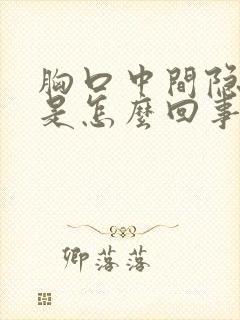 胸口中間隐
是怎麽回事
卿落落